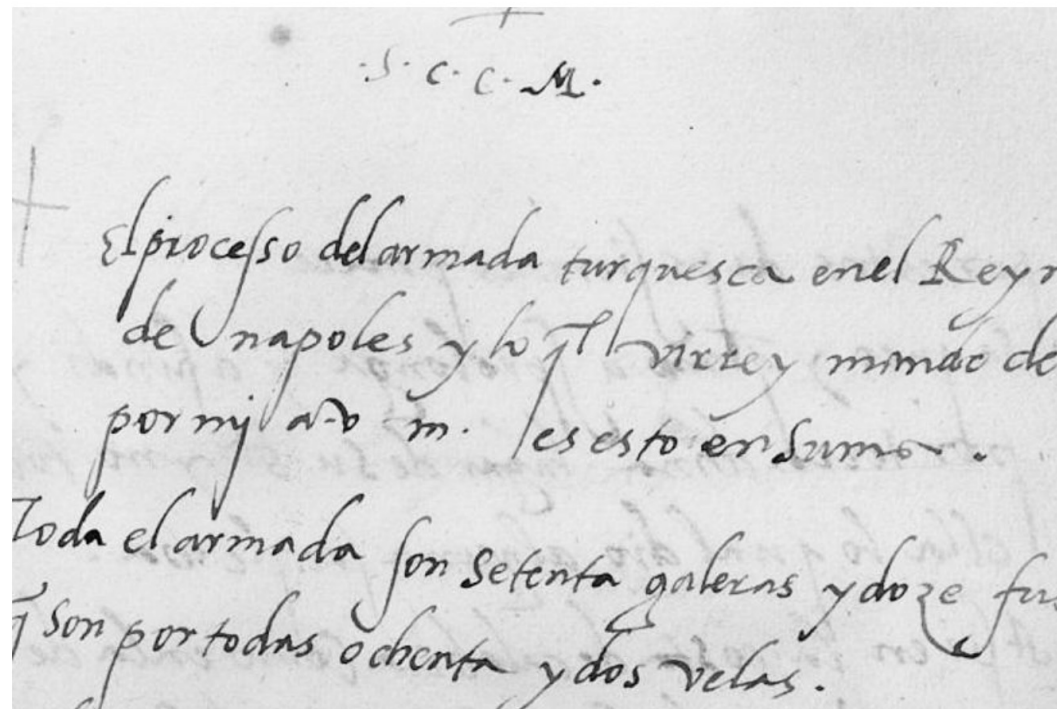 .S. C. C. M.
El processo del armada turquesca en el Reyn
de napoles y lo q̃l virrey mando de
por mj a v m. es esto en suma.
Toda el armada son setenta galeras y doze fu
q̃ son por todas ochenta y dos velas.